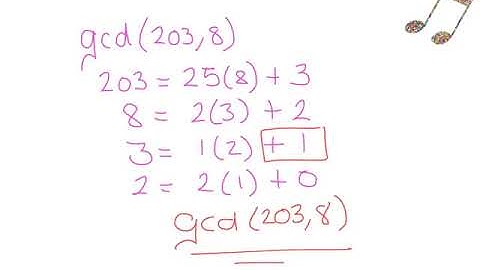 gcd(203,8)
203 = 25(8) + 3
8 = 2(3) + 2
3 = 1(2) + 1
2 = 2(1) + 0
gcd(203,8)